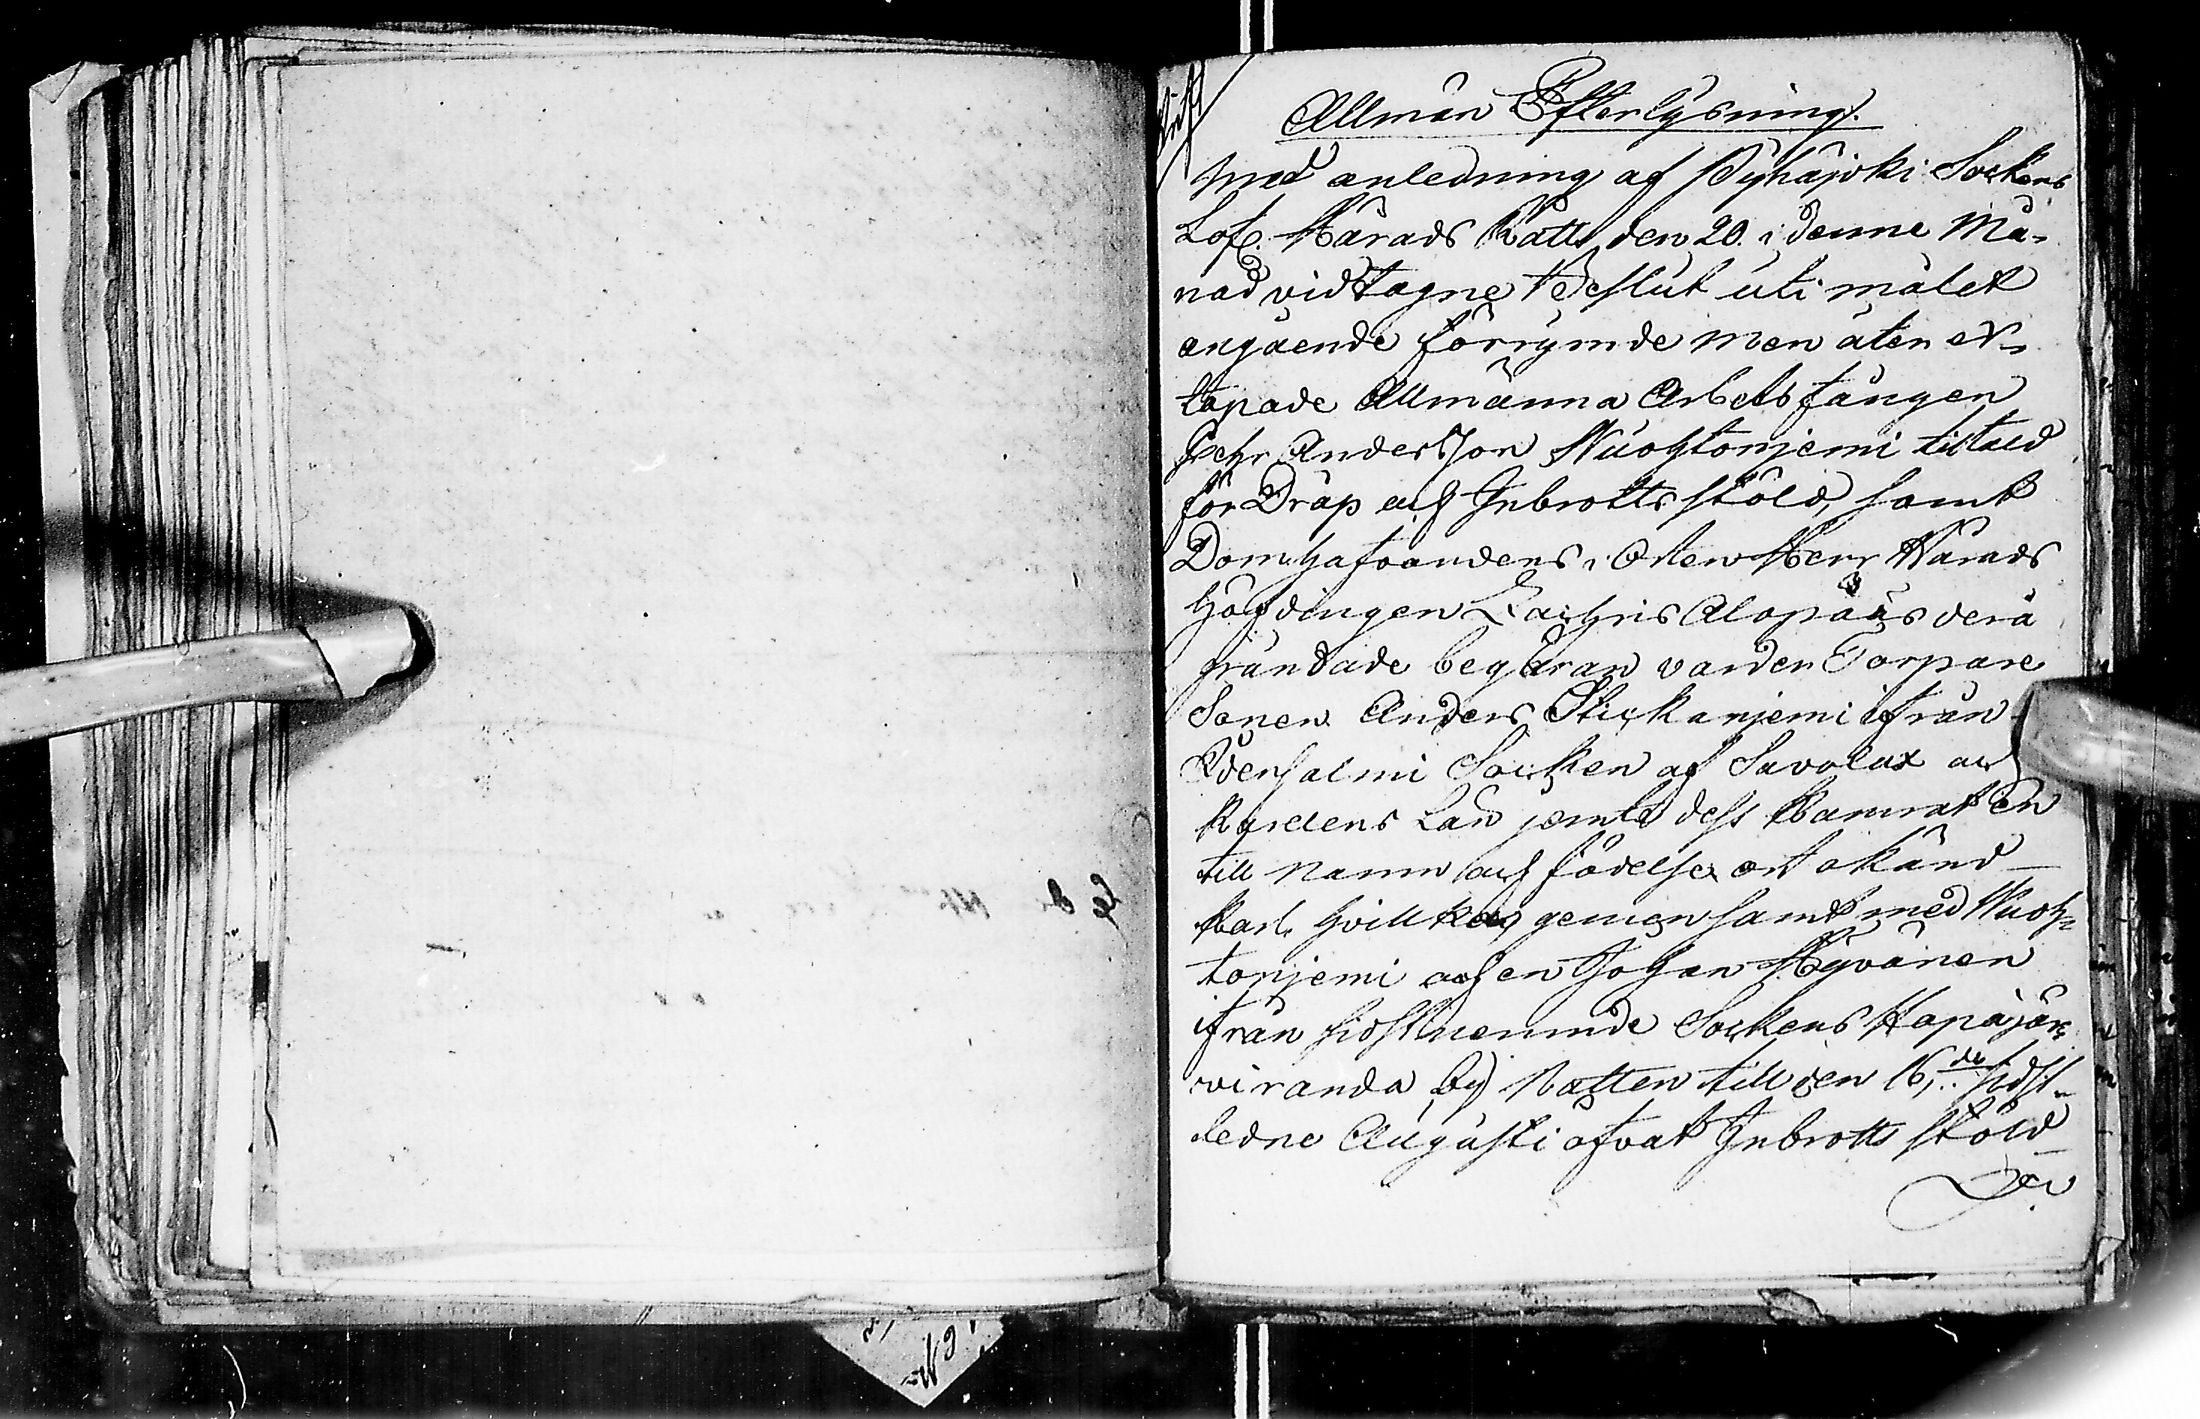 Afskrift
Allmän Efterlysning.
Med anledning af Pyhäjoki Sockens
Lofl. Härads Rätts den 20. i denne Må-
nad vidtagne beslut uti målet
angående förrymde men åter er-
tapade Allmänna Arbets fången
Pehr Andersson Nuoftonjemi tilltald
för Dråp och Inbrotts stöld, samt
Domhafvandens i Orten Herr Härads
Höfdingen Zachris Alopæus derå
grundade begäran varder Torpare
Sonen Anders Stickanjemi ifrån
Idensalmi Socken af Savolax och
Karelens Län jemte dess Kamrat en
till namn och födelse ort okänd
Karl, hvilka gemensamt med Nuof-
tonjemi och en Johan Hyvönen
ifrån sidstnemnde Sockens Hapajär-
viranda by Natten till den 16de sidst-
ledne Augusti öfvat Inbrotts stöld